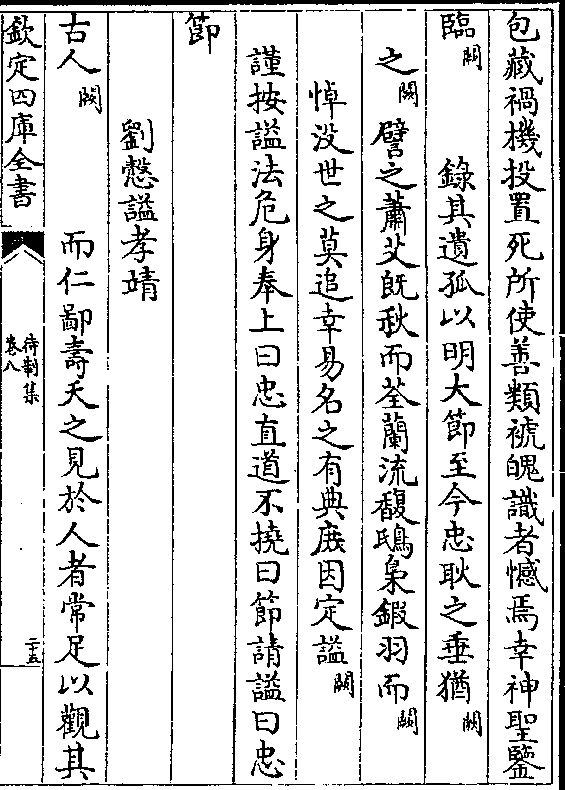 包藏禍機投置死所使善類褫魄識者憾焉幸神聖鑒
臨闕　錄其遺孤以明大節至今忠耿之垂猶闕
之闕譬之蕭艾既秋而荃蘭流馥鴟梟鎩羽而闕
悼没世之莫追幸易名之有典庻因定諡闕
謹按諡法危身奉上曰忠直道不撓曰節請諡曰忠
節
劉慤諡孝靖
古人闕　而仁鄙壽夭之見於人者常足以觀其
欽定四庫全書
待制集
卷八
二十五